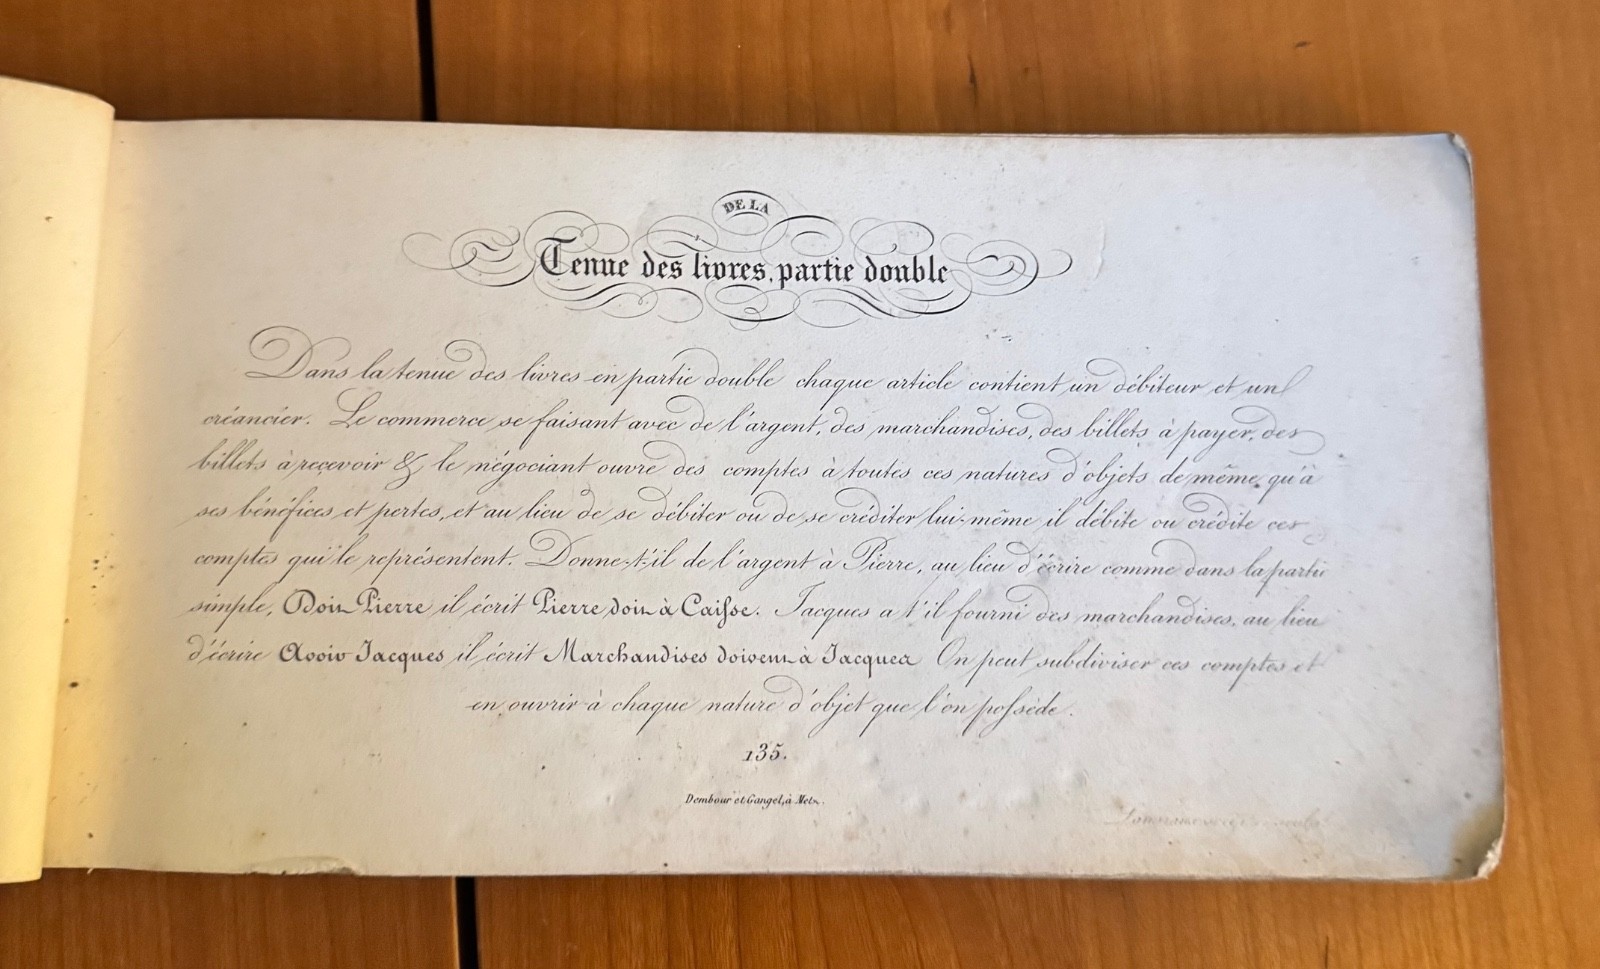 DE LA
Tenue des livres, partie double
Dans la tenue des livres en partie double chaque article contient un débiteur et un
créancier. Le commerce se faisant avec de l'argent, des marchandises, des billets à payer, des
billets à recevoir & le négociant ouvre des comptes à toutes ces natures d'objets de même qu'à
ses bénéfices et pertes, et au lieu de se débiter ou de se créditer lui-même il débite ou crédite ces
comptes qui le représentent. Donne-t'il de l'argent à Pierre, au lieu d'écrire comme dans la partie
simple, Doit Pierre il écrit Pierre doit à Caisse. Jacques a t'il fourni des marchandises, au lieu
d'écrire Avoir Jacques il écrit Marchandises doivent à Jacques On peut subdiviser ces comptes et
en ouvrir à chaque nature d'objet que l'on possède.
135.
Dembour et Gangel, à Metz.